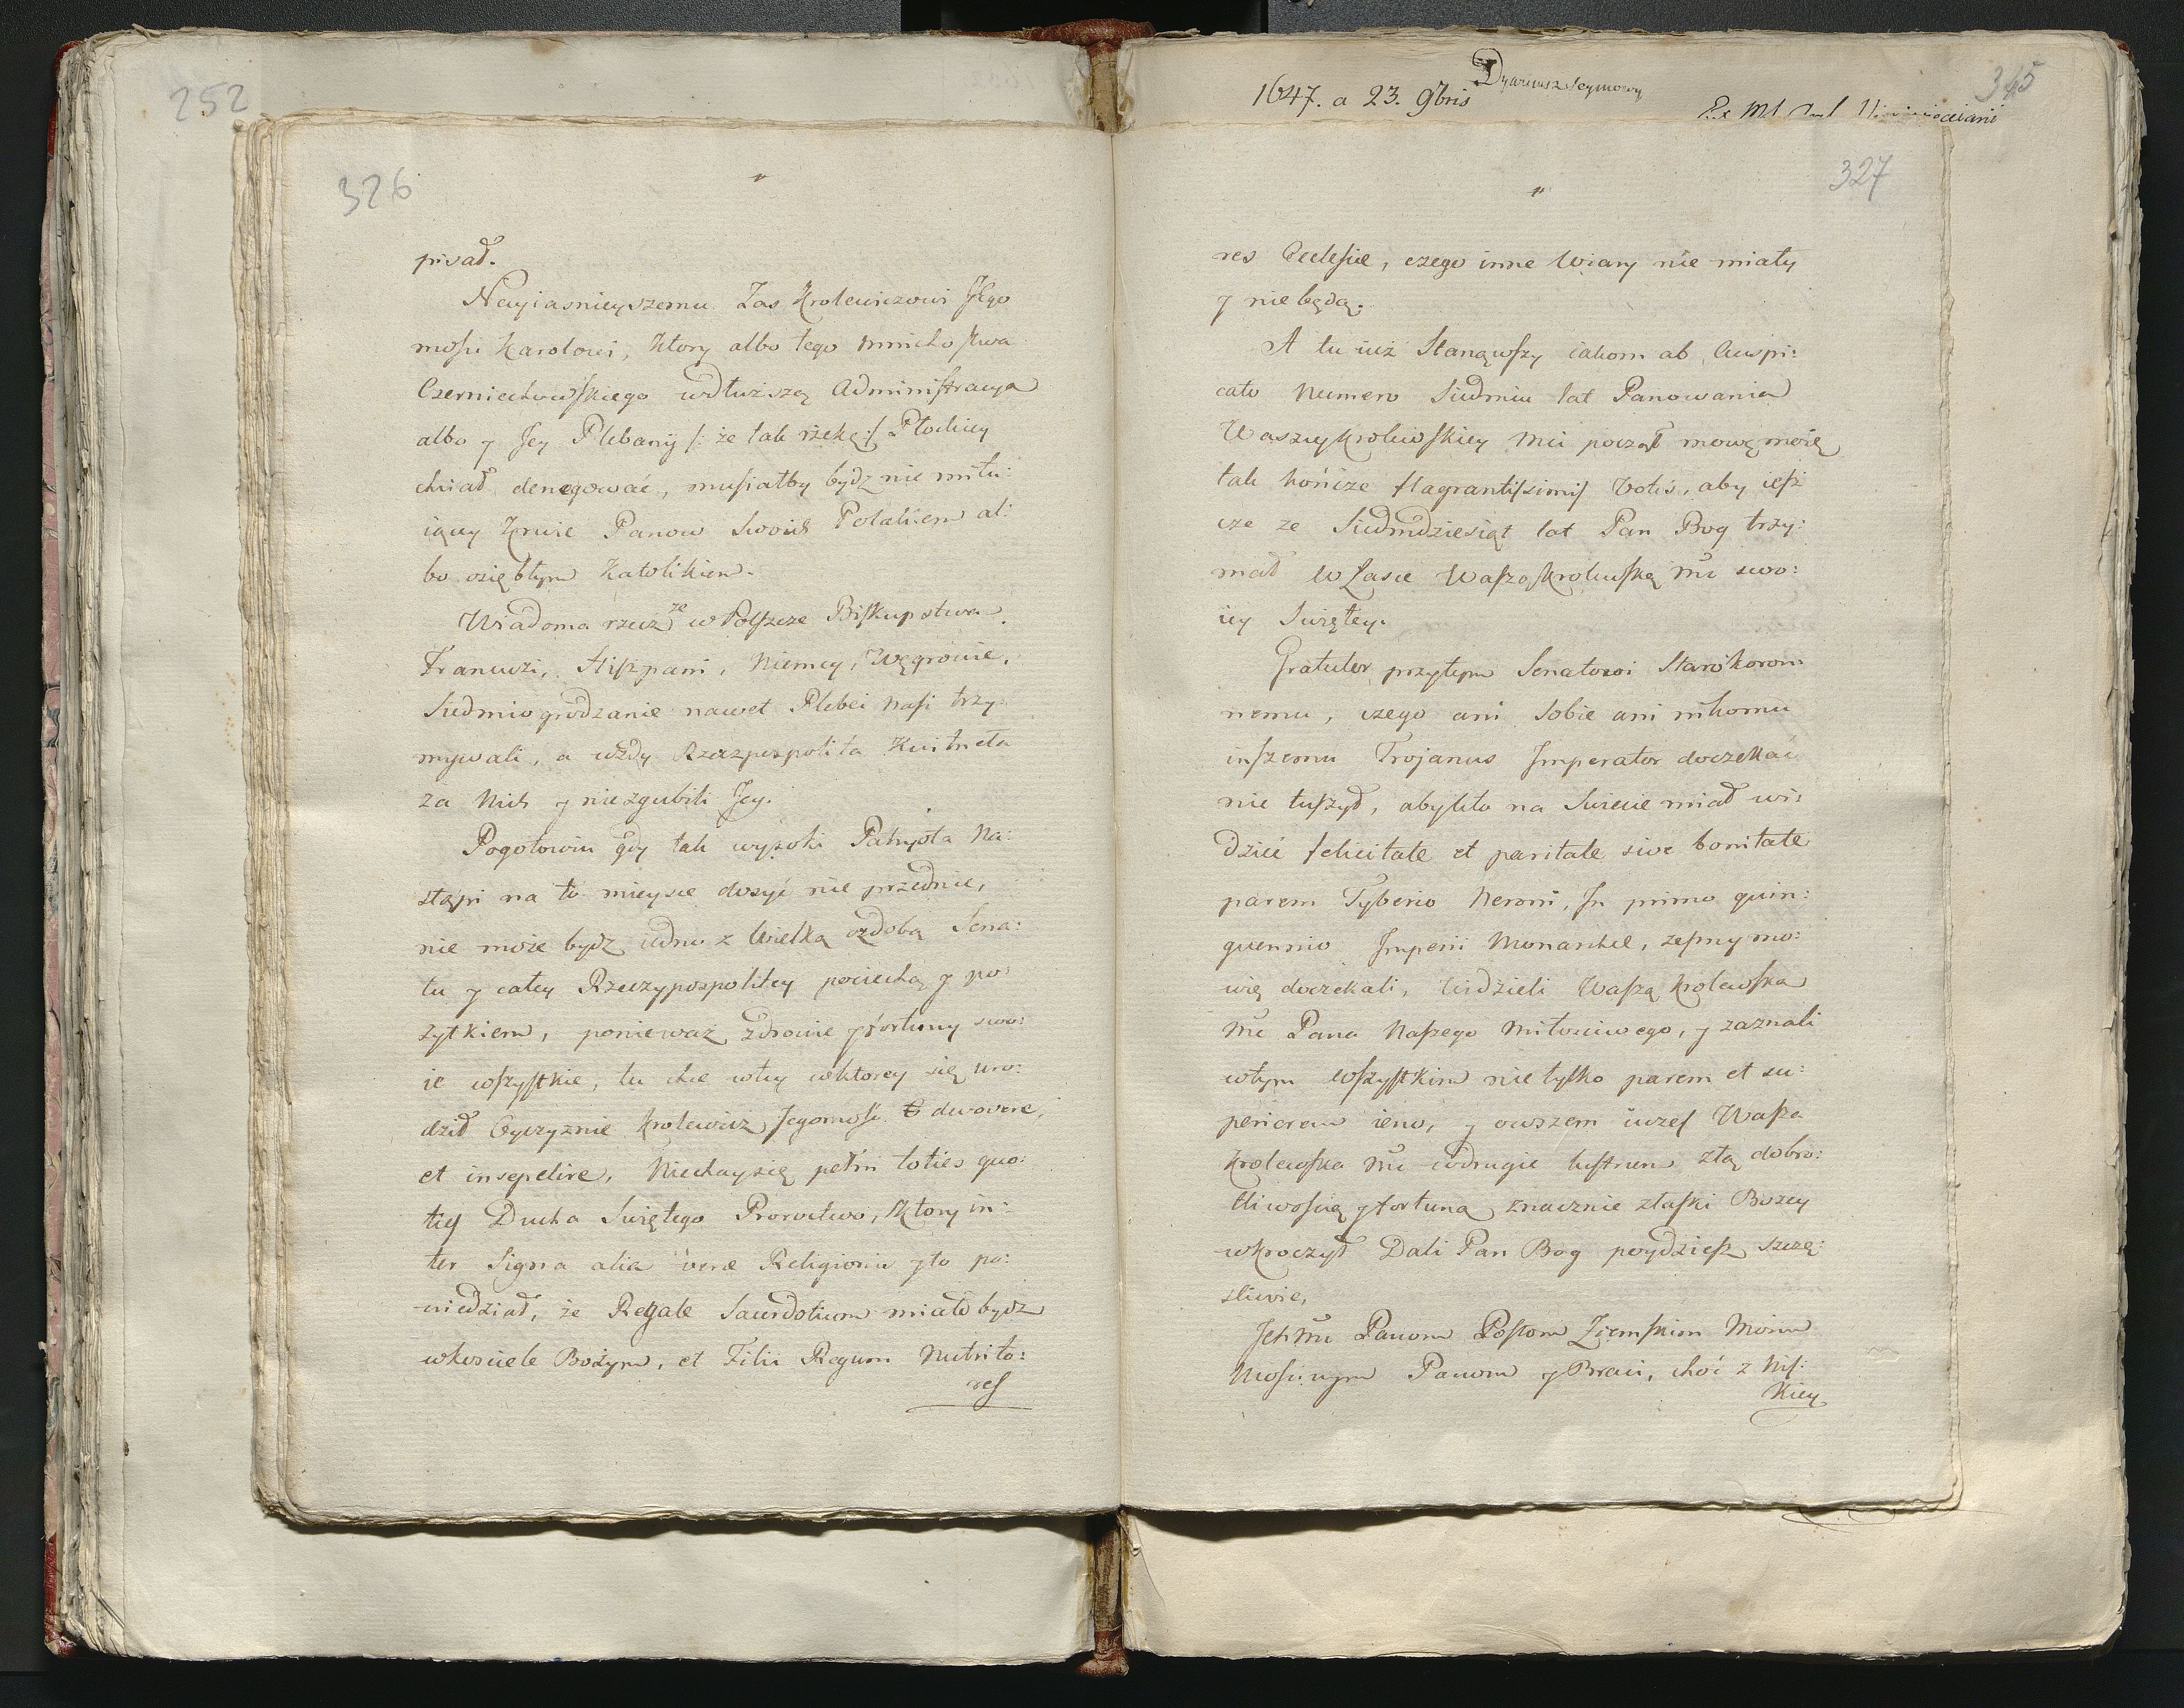 252
326
pisał.
Nayiasnieyszemu Zas Krolewiczowi JEgo
mosci Karolowi, Ktory albo tego mnichostwa
Czerniechowskiego wdłuższą Administracya
albo y Jey Plebanij /: że tak rzekę :/ Płockiey
chciał denegować, musiałby bydz nie miłu:
iący Krwie Panow Swoich Polakiem al:
bo oziębłym Katolikiem.
Wiadoma rzecz że w Polszcze Biskupstwa
Francuzi, Hiszpani, Niemcy, Węgrowie,
Siedmiogrodzanie nawet Plebei nasi trzy:
mywali, a wżdy Rzeczpospolita Kwitneła
za Nich y niezgubili Jey.
Pogotowiu gdy tak wysoki Patryota Na:
stąpi na to mieysce dosyć nie przednie,
nie może bydz iedno z Wielką ozdobą Sena:
tu y całey Rzeczypospolitey pociechą y po:
żytkiem, ponieważ zdrowie y fortuny swo:
ie wszystkie, tu chce wtey wktorey się uro:
dził Oyczyznie Krolewicz Jegomość devovere,
et insepelire, Niechaysię pełni toties quo:
ties Ducha Swiętego Proroctwo, Ktory in:
ter Signa alia veræ Religionis y to po:
wiedział, że Regale Sacerdotium miało bydz
wkosciele Bożym, et Filii Regum Nutrito:
res
1647. a 23. 9bris
Dyariusz Seymowy
345
327
res Ecclesiæ, czego inne Wiary nie miały
y nie będą.
A tu iuż Stanąwszy iakom ab Auspi:
cato Numero Siedmiu lat Panowania
Waszey Krolewskiey Mci począł mowę moię
tak kończe flagrantissimis Votis, aby iesz
cze ze Siedmdziesiąt lat Pan Bog trzy:
mał w Łasce Waszą Krolewską Mć swo:
iey Swiętey.
Gratulor przytym Senatowi Starokoron:
nemu, czego ani Sobie ani nikomu
inszemu Trojanus Jmperator doczekać
nie tuszył, abykto na Swiecie miał wi:
dzieć felicitate et paritate sive bonitate
parem Tyberio Neroni, Jn primo quin:
quennio Jmperii Monarchæ, żesmy mo:
wię doczekali, Widzieli Waszą Krolewską
Mć Pana Naszego Miłosciwego, y zaznali
wtym wszystkim nie tylko parem et su:
periorem ieno, y owszem iużes Wasza
Krolewska Mć wdrugie lustrum ztą dobro:
tliwoscią y fortuną znacznie złaski Bożey
wkroczył Dali Pan Bog poydziesz szczę:
sliwie,
Jch Mć Panom Posłom Ziemskim Moim
Mosciwym Panom y Braci, choć z Nis:
kiey